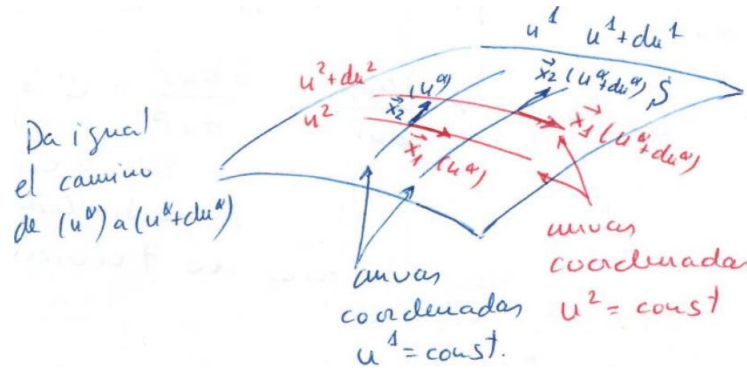 u¹ u¹+du¹
u²+du²
x⃗₂ (uᵅ)
x⃗₂ (uᵅ+duᵅ) S
u²
x⃗₁ (uᵅ)
x⃗₁ (uᵅ+duᵅ)
Da igual
el camino
de (uᵅ) a (uᵅ+duᵅ)
curvas
coordenadas
u¹ = const.
curvas
coordenadas
u² = const